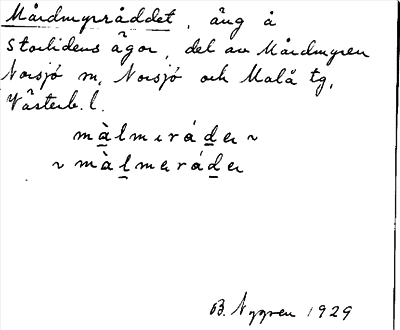 Mårdmyrråddet, äng å
Storlidens ägor, del av Mårdmyren
Norsjö sn, Norsjö och Malå tg,
Västerb. l.
må̀lmıråde̱ı ~
~ mà̱ḻmeráḏeı
B. Nygren 1929